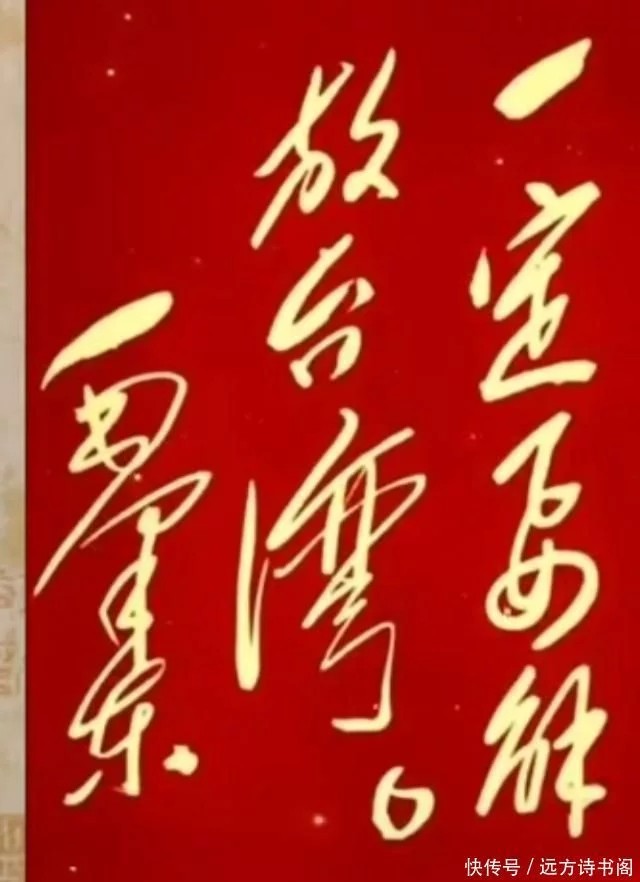 一定要解
放台湾。
毛泽东
快传号／远方诗书阁